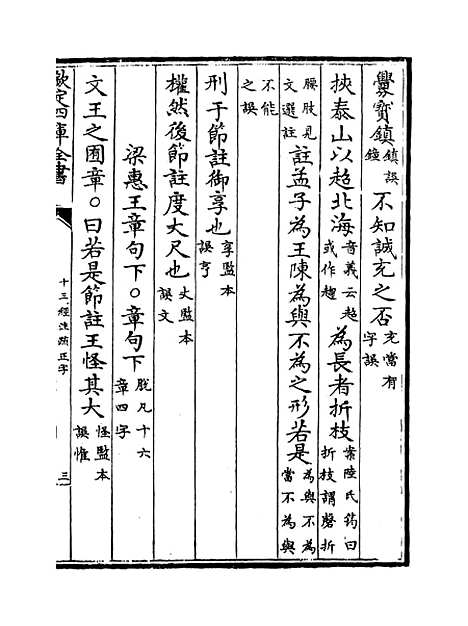 釁寳鎮鎮誤鐘不知誠充之否充當有字誤
挾泰山以超北海音義云超或作趨為長者折枝案陸氏筠曰折枝謂磬折
腰肢見文選註註孟子為王陳為與不為之形若是為與不為當不為與
不能之誤
刑于節註御享也享監本誤亨
權然後節註度丈尺也丈監本誤文
梁惠王章句下○章句下脱凡十六章四字
文王之囿章○曰若是節註王怪其大怪監本誤惟
欽定四庫全書
十三經注疏正字
三